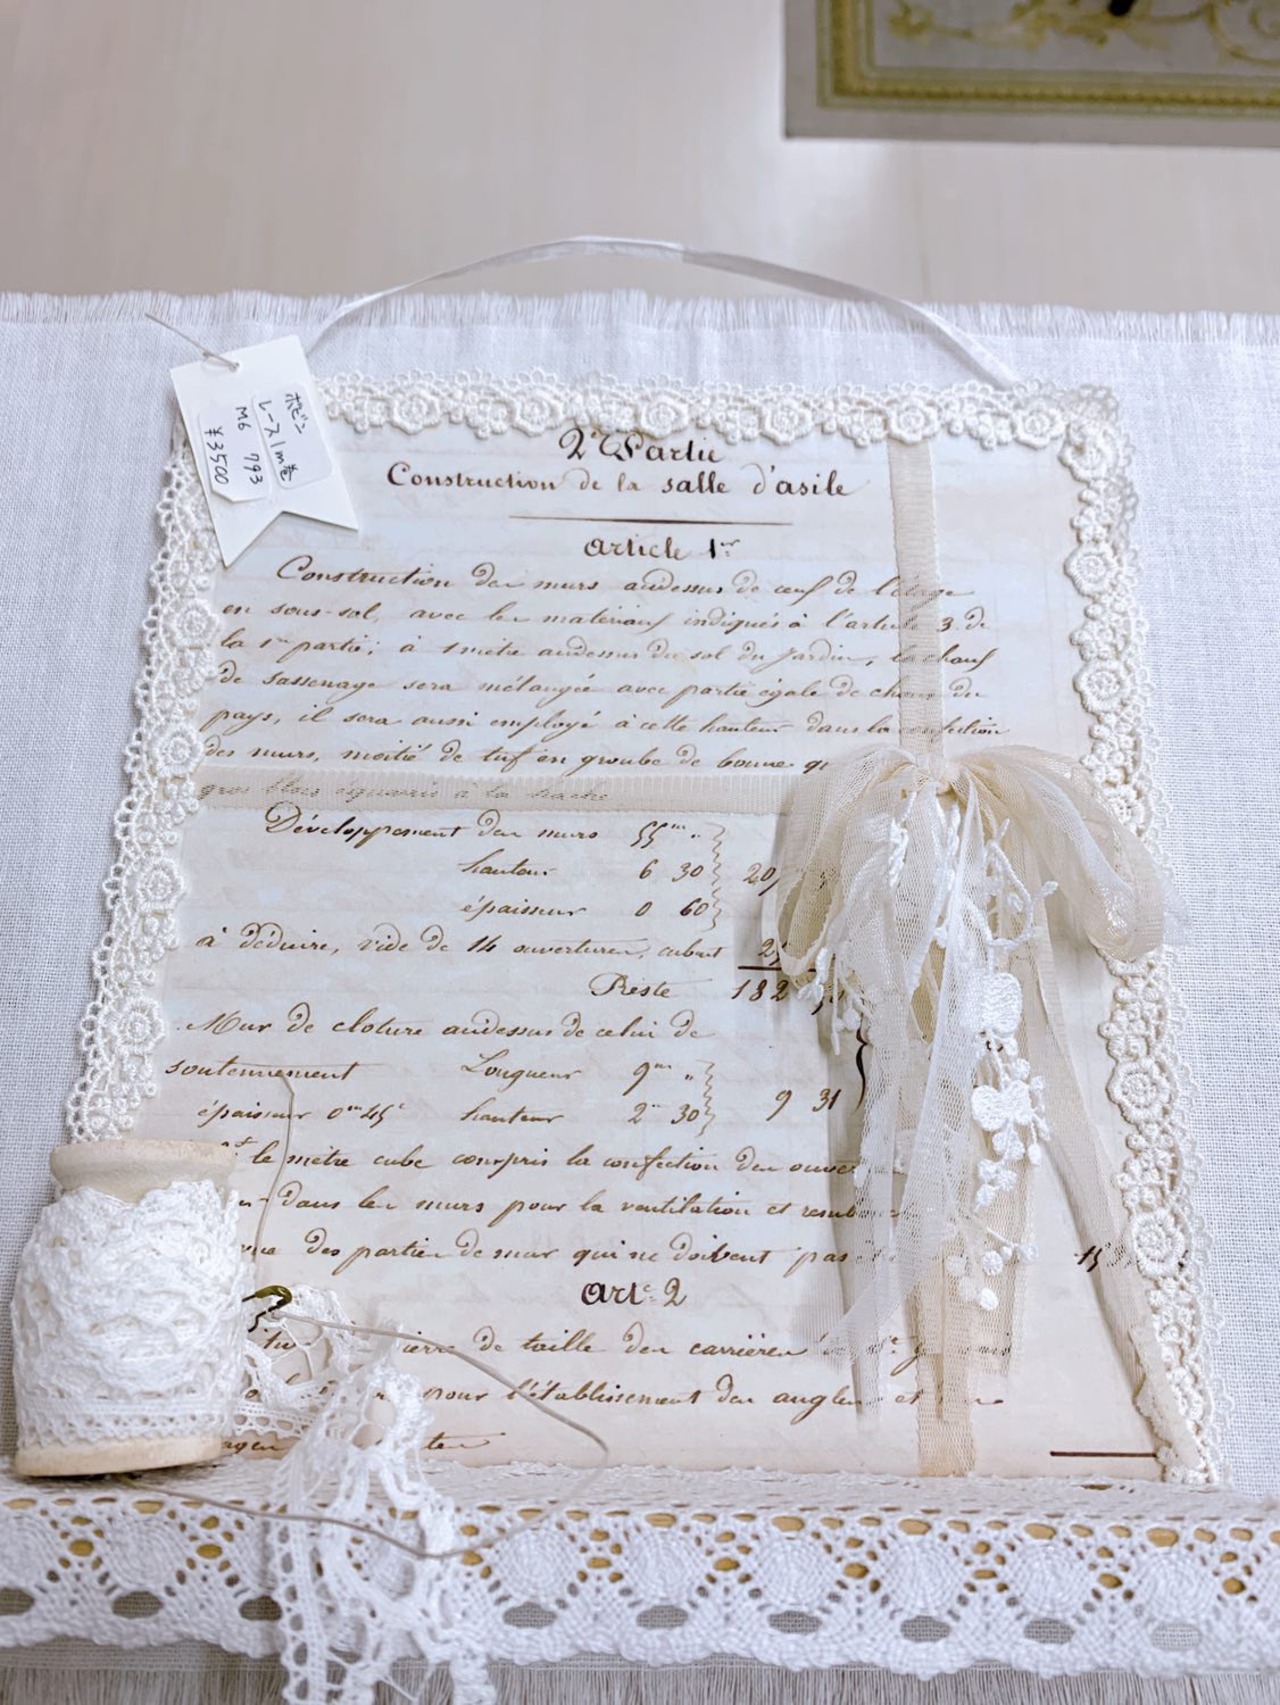 ボビン
レース1m巻
M6 793
¥3500
2e Partie
Construction de la salle d'asile
Article 1er
Construction des murs audessus de ceux de l'étage
en sous-sol, avec les matériaux indiqués à l'article 3 de
la 1re partie; à 1 mètre audessus du sol du Jardin, la chaux
de Sassenage sera mélangée avec partie égale de chaux du
pays, il sera aussi employé à cette hauteur dans la confection
des murs, moitié de tuf en groube de bonne
gros blocs équarris à la hache
Développement des murs 55m "
hauteur 6 30
épaisseur 0 60
à déduire, vide de 14 ouvertures, cubant
Reste 182
Mur de cloture audessus de celui de
soutennement Longueur 9m "
épaisseur 0m45c hauteur 2m 30 9 31
le mètre cube compris la confection des
dans les murs pour la ventilation et
des parties de mur qui ne doivent pas
Artc 2
de taille des carrières
pour l'établissement des angles et